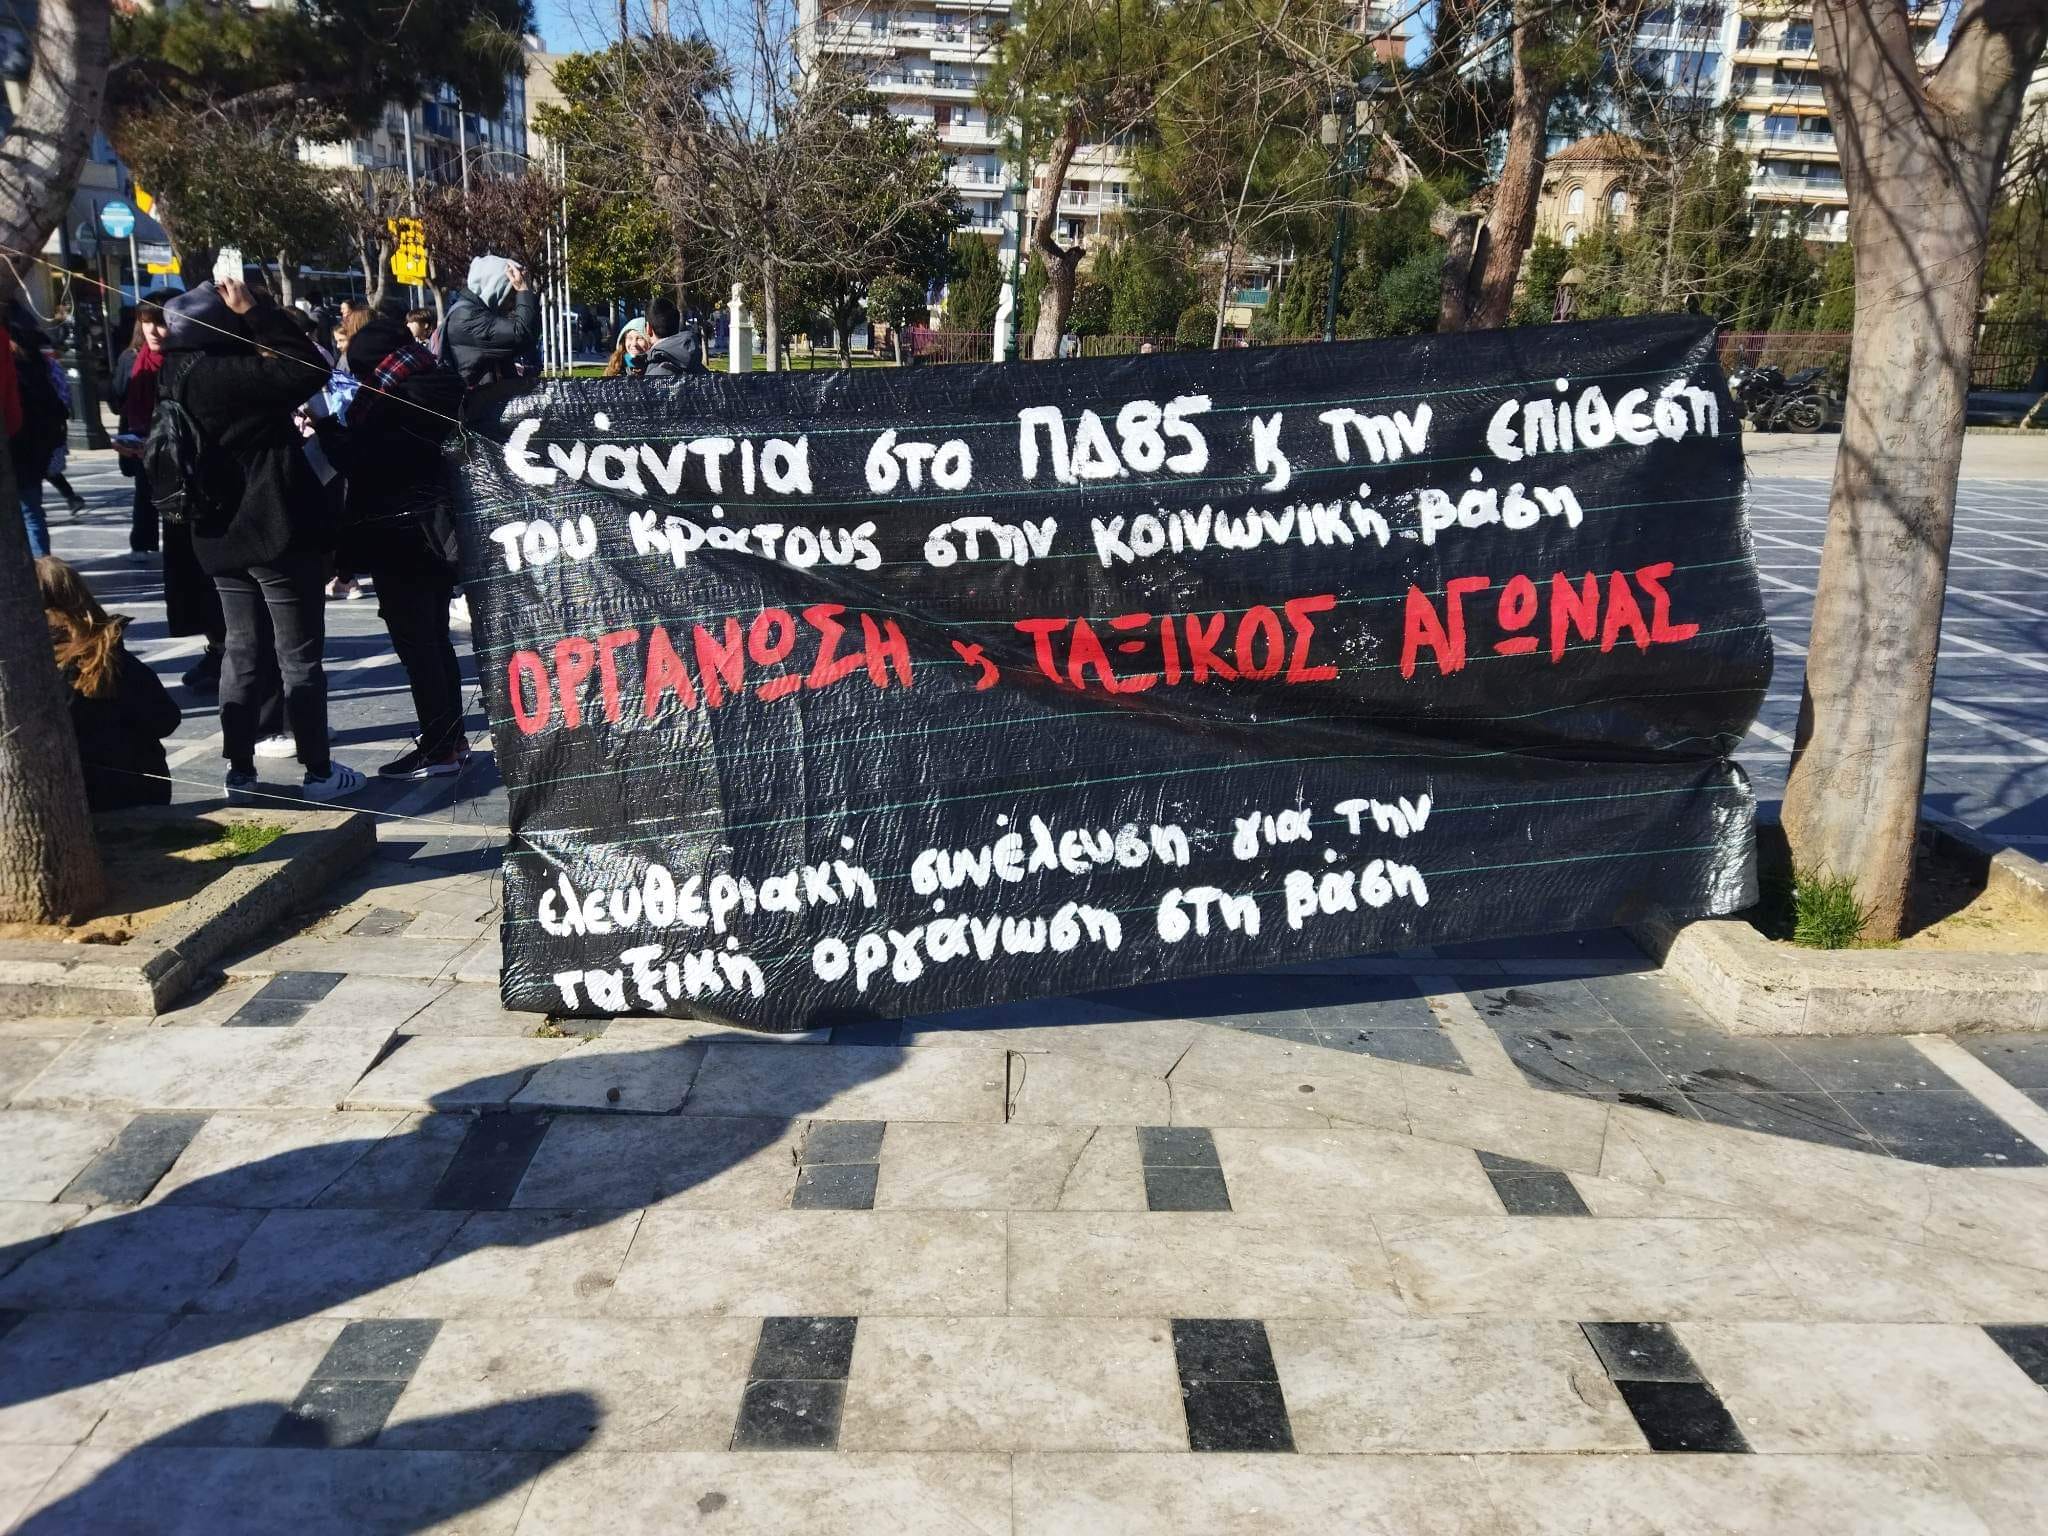 Ενάντια στο ΠΔ85 κ την επίθεση
του κράτους στην κοινωνική βάση
ΟΡΓΑΝΩΣΗ κ ΤΑΞΙΚΟΣ ΑΓΩΝΑΣ
ελευθεριακή συνέλευση για την
ταξική οργάνωση στη βάση